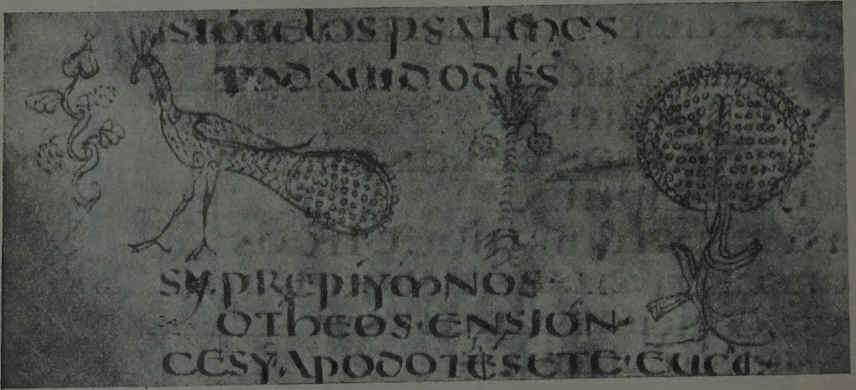 ISTÓTELOS PSALMOS
TODAUID ODES
SY·PREPIYMNOS·
OTHEOS·ENSION·
CESY·APODOTHESETE·EUCE